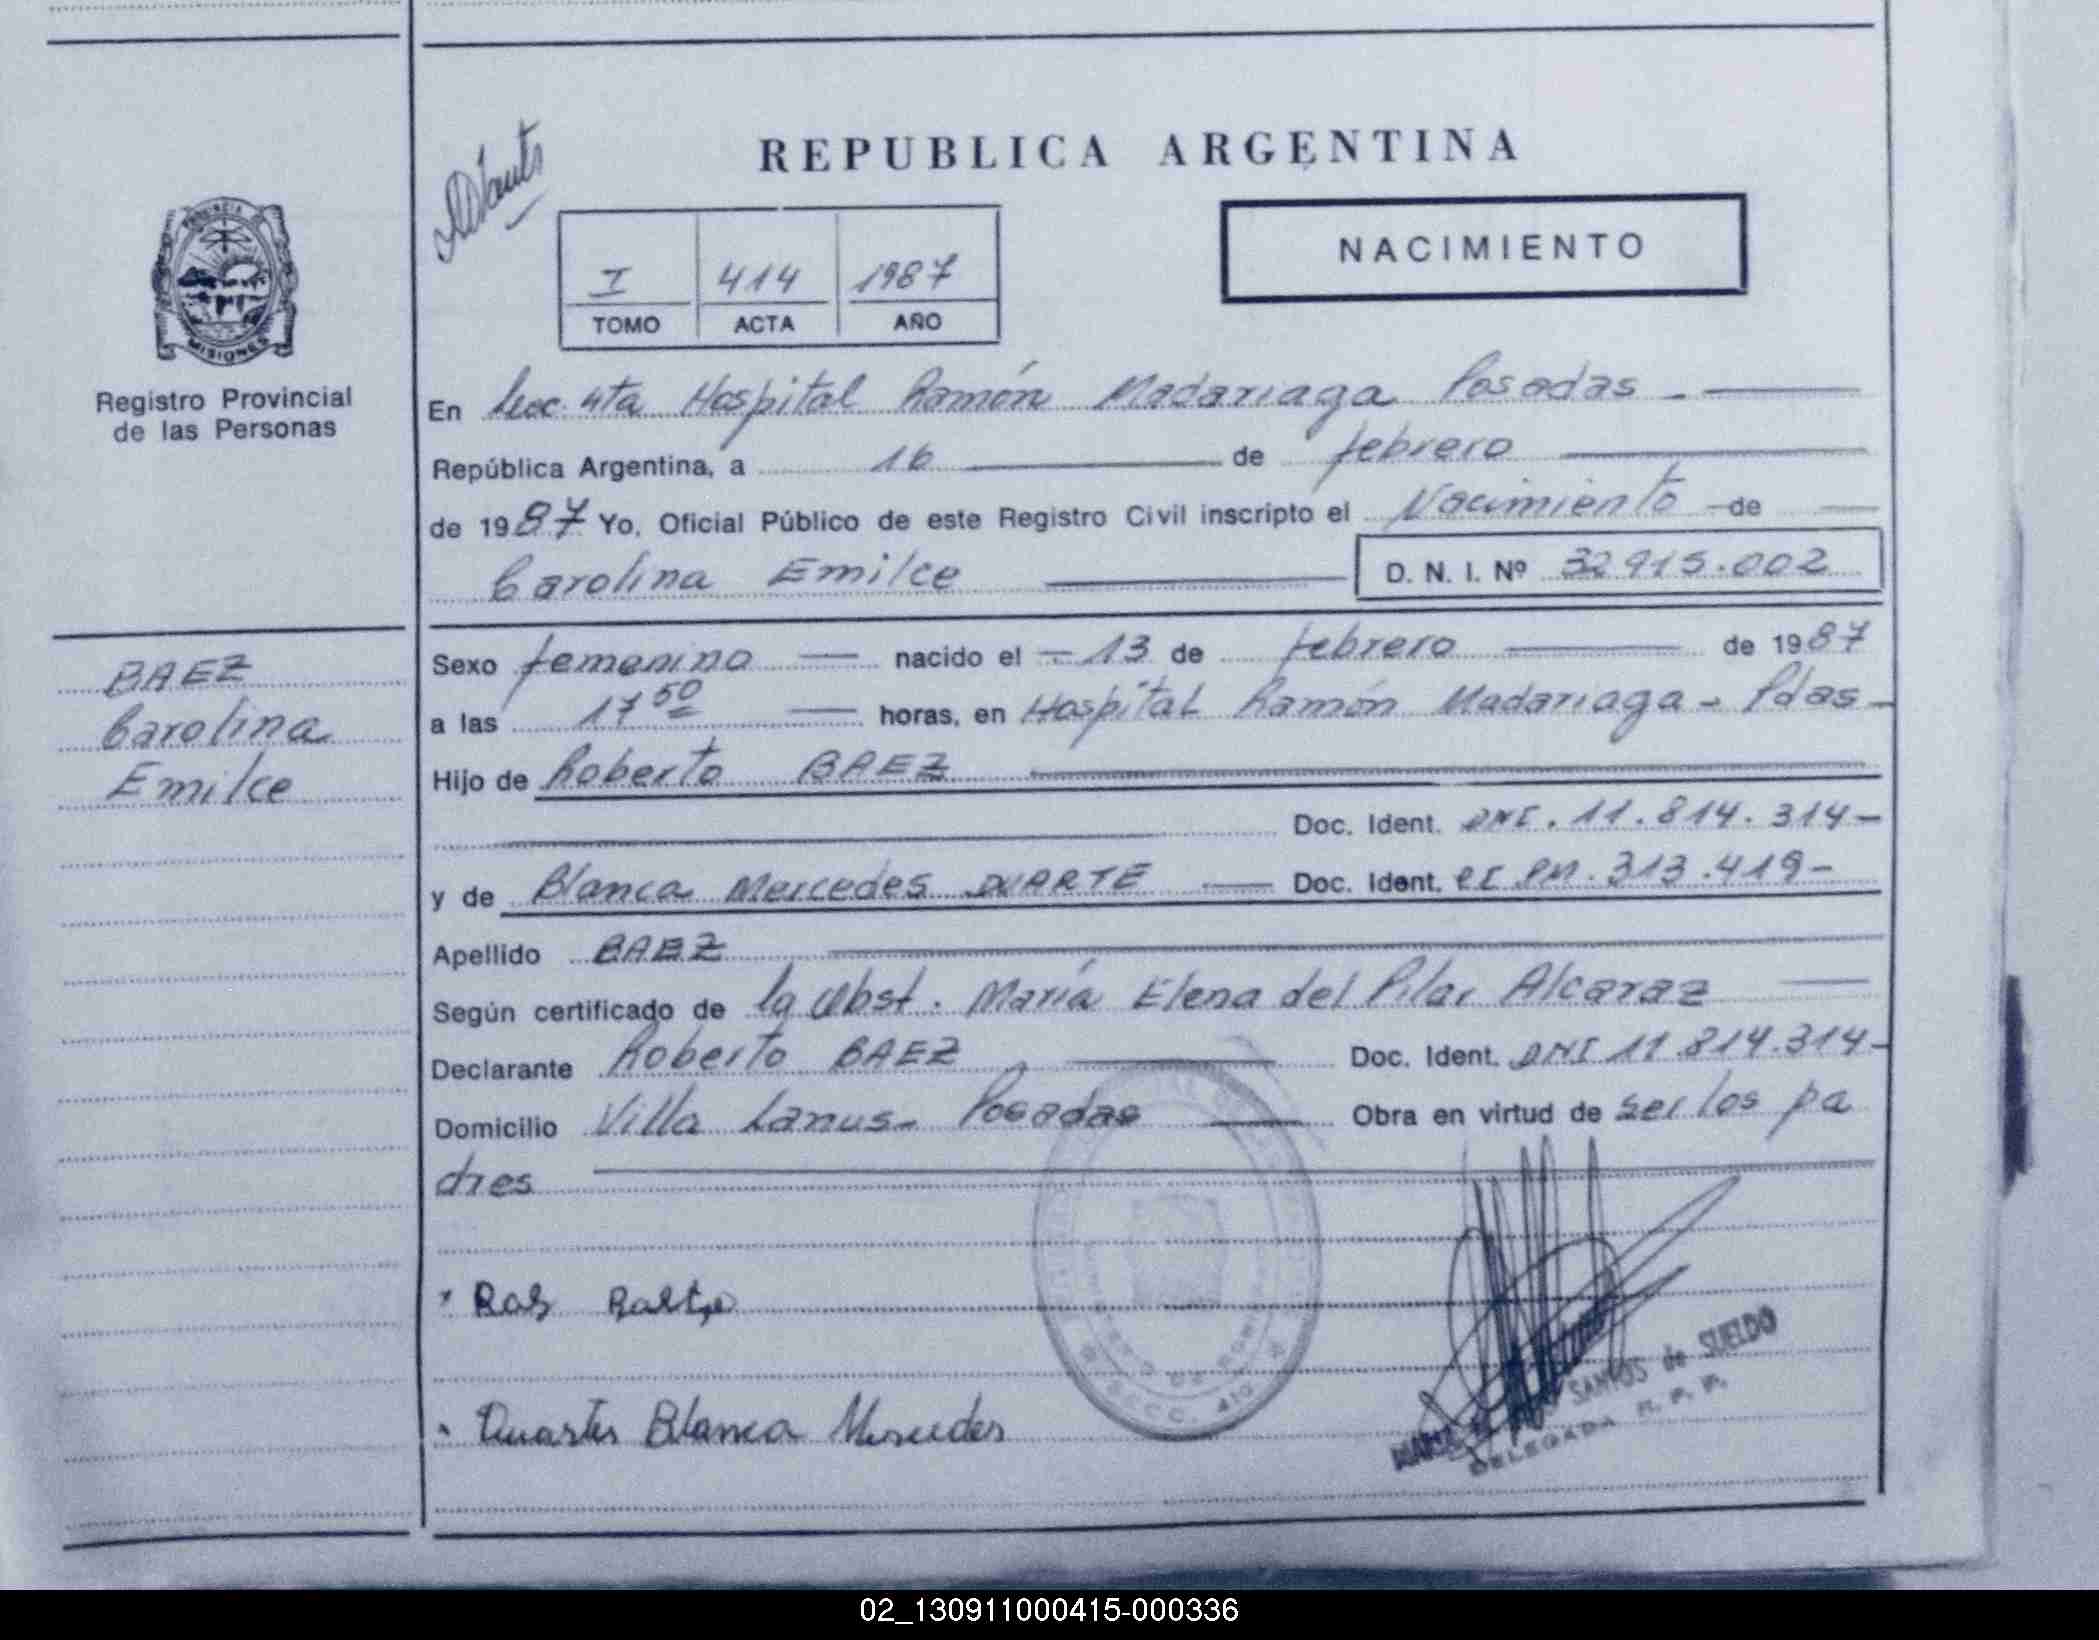 REPUBLICA ARGENTINA
NACIMIENTO
I 414 1987
TOMO ACTA AÑO
PROVINCIA DE
MISIONES
Registro Provincial
de las Personas
En Secc. 4ta Hospital Ramón Madariaga Posadas -
República Argentina, a 16 de febrero
de 1987 Yo, Oficial Público de este Registro Civil inscripto el Nacimiento de
Carolina Emilce D. N. I. Nº 32.915.002
BAEZ
Carolina
Emilce
Sexo femenino nacido el - 13 de febrero de 1987
a las 17 50 horas, en Hospital Ramón Madariaga - Pdas -
Hijo de Roberto BAEZ
Doc. Ident. DNI. 11.814.314-
y de Blanca Mercedes DUARTE Doc. Ident. CI PM. 313.419-
Apellido BAEZ
Según certificado de la Obst. María Elena del Pilar Alcaraz
Declarante Roberto BAEZ Doc. Ident. DNI 11.814.314-
Domicilio Villa Lanus- Posadas Obra en virtud de ser los pa
dres
Duarte Blanca Mercedes
SANTOS de SUELDO
DELEGADA R. P. P.
02_130911000415-000336